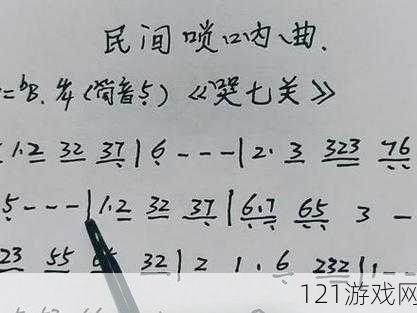 民间唢呐曲.
=ᵇB. 4/4 (筒音5̣) 《哭七关》
1.2 32 37 | 6 - - - | 2. 3 323 76
5 - - - | 1.2 32 37 | 6.7 65 3 -
23 55 32 | 2 1. 6 232 | 1 -
121游戏网